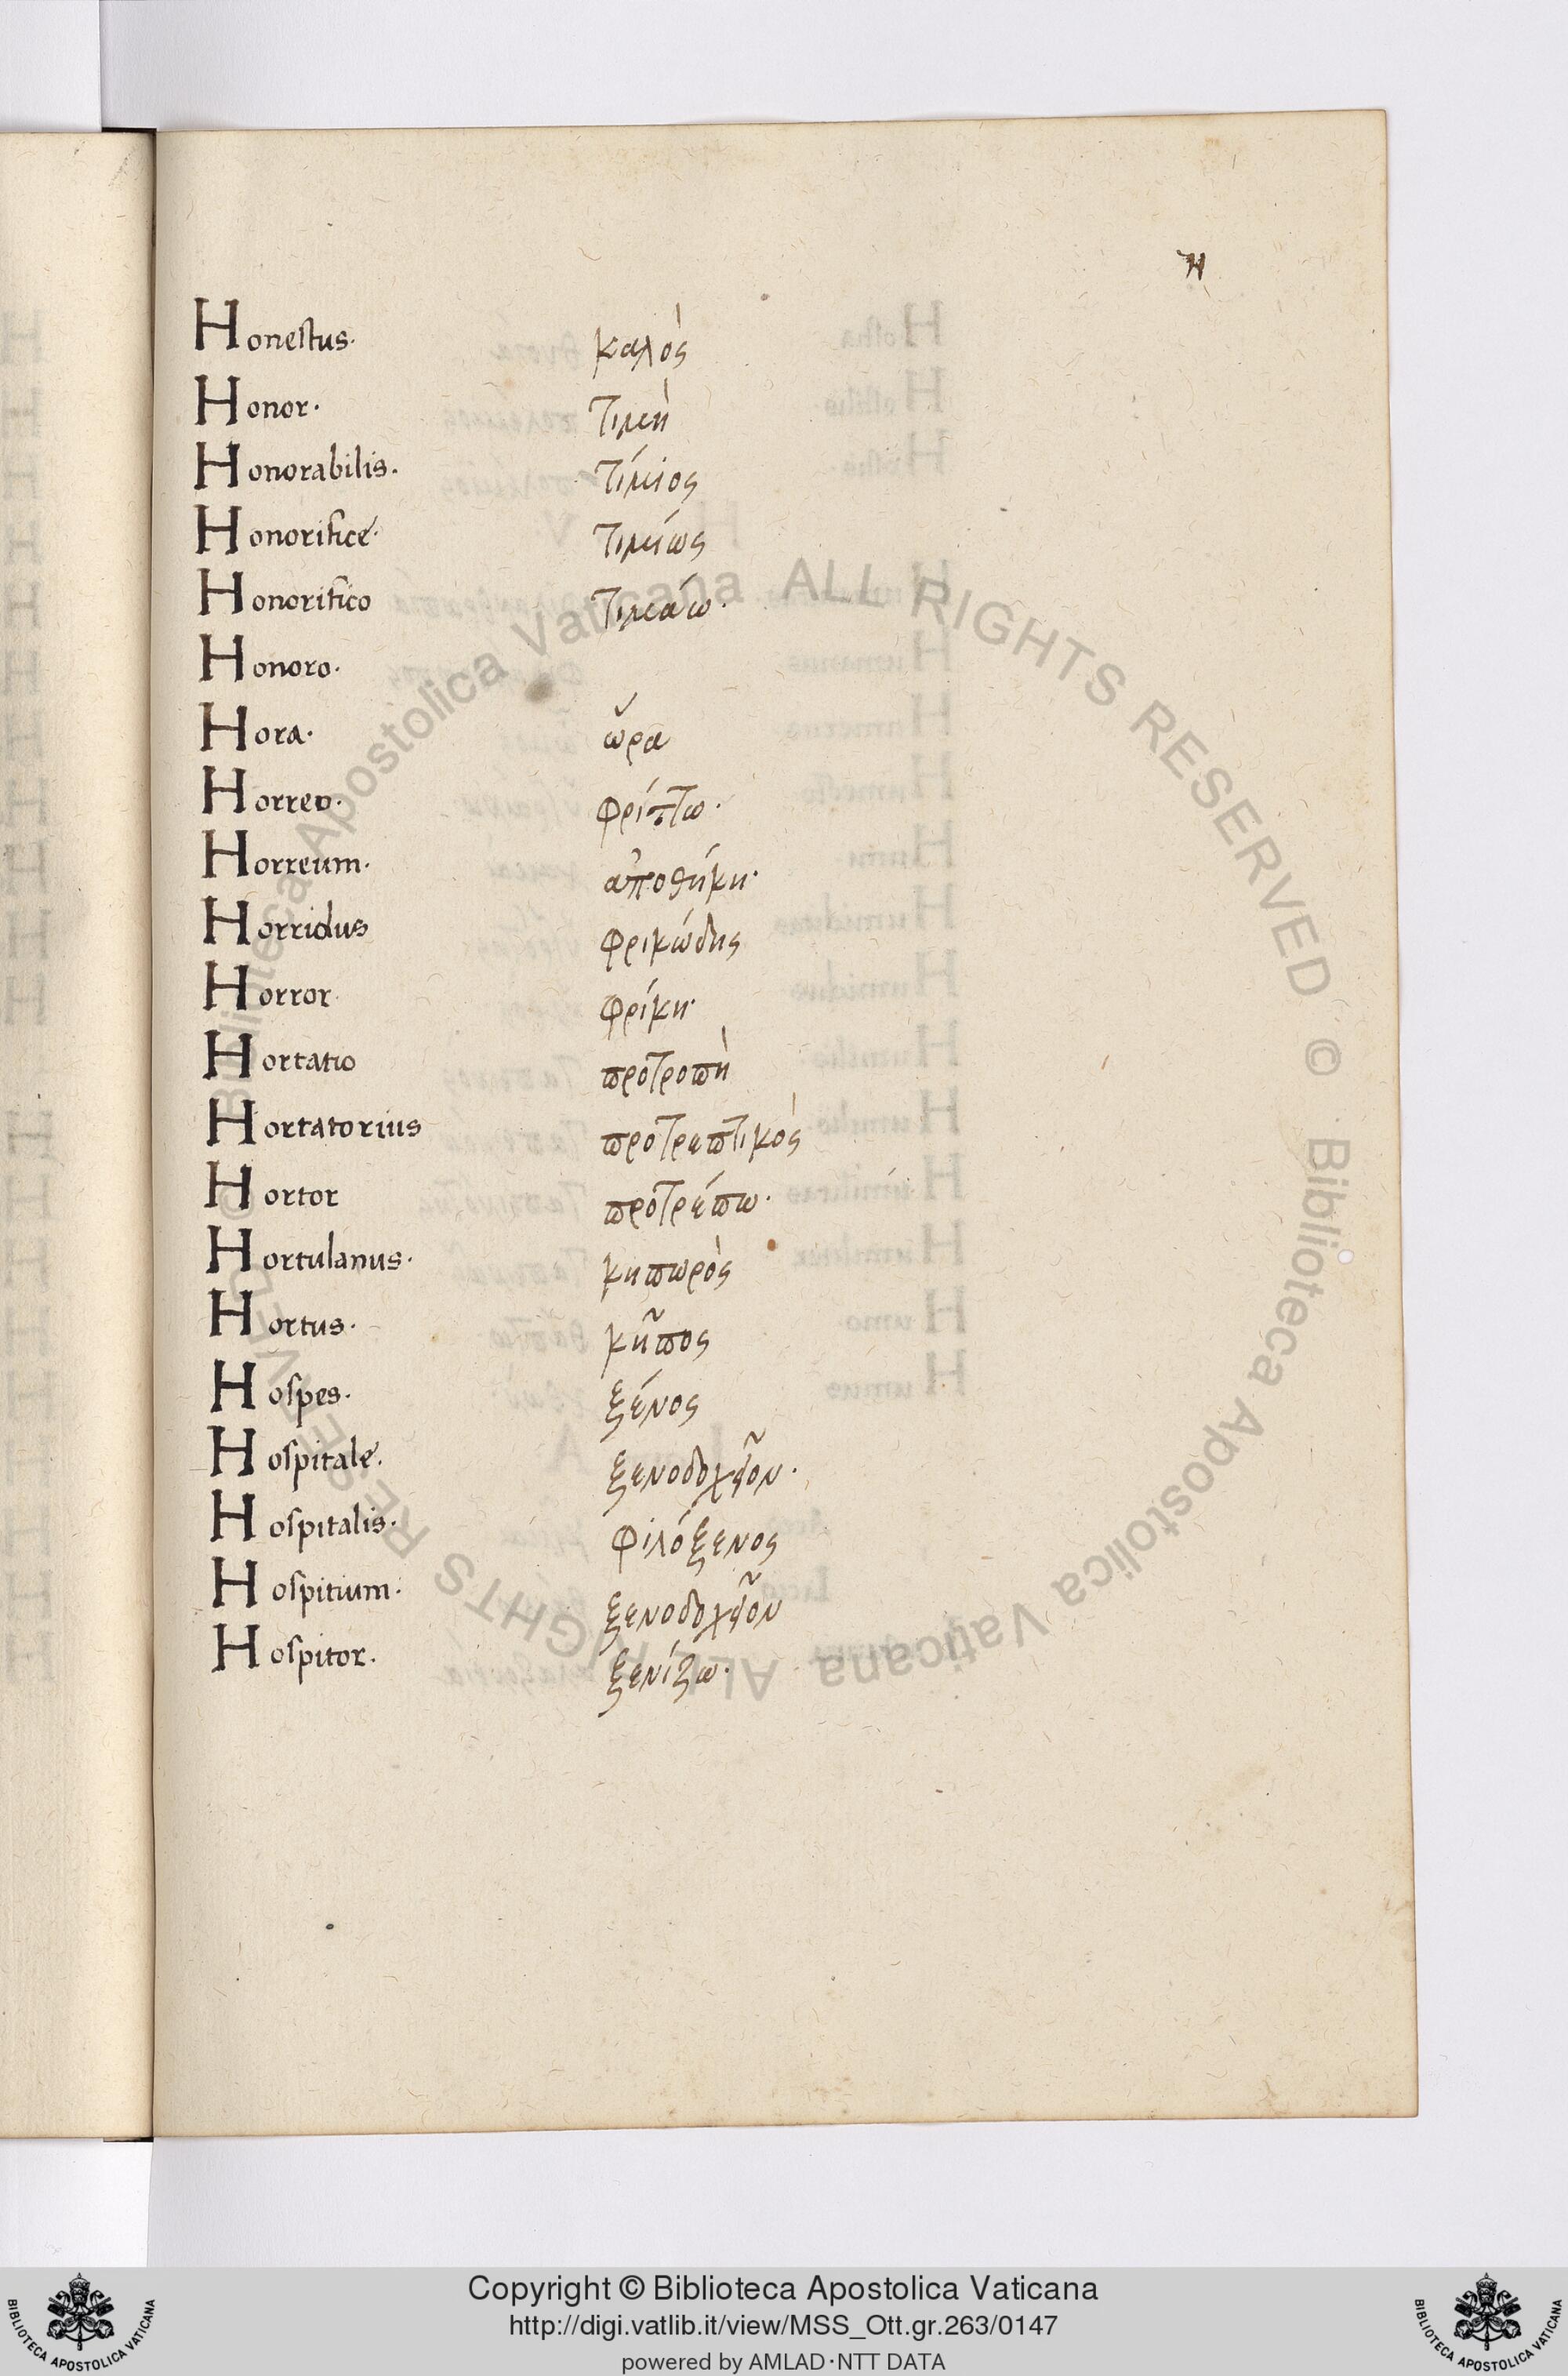 H
Honestus. καλὸς
Honor. τιμὴ
Honorabilis. τίμιος
Honorifice. τιμίως
Honorifico τιμάω.
Honoro.
Hora. ὥρα
Horreo. φρίττω.
Horreum. ἀποθήκη.
Horridus φρικώδης
Horror φρίκη.
Hortatio προτροπὴ
Hortatorius προτρεπτικὸς
Hortor προτρέπω.
Hortulanus. κηπωρὸς
Hortus. κῆπος
Hospes. ξένος
Hospitale. ξενοδοχεῖον.
Hospitalis. φιλόξενος
Hospitium. ξενοδοχεῖον
Hospitor. ξενίζω.
© Biblioteca Apostolica Vaticana ALL RIGHTS RESERVED © Biblioteca Apostolica Vaticana ALL RIGHTS RESERVED
Copyright © Biblioteca Apostolica Vaticana
http://digi.vatlib.it/view/MSS_Ott.gr.263/0147
powered by AMLAD·NTT DATA
BIBLIOTECA APOSTOLICA VATICANA
BIBLIOTECA APOSTOLICA VATICANA